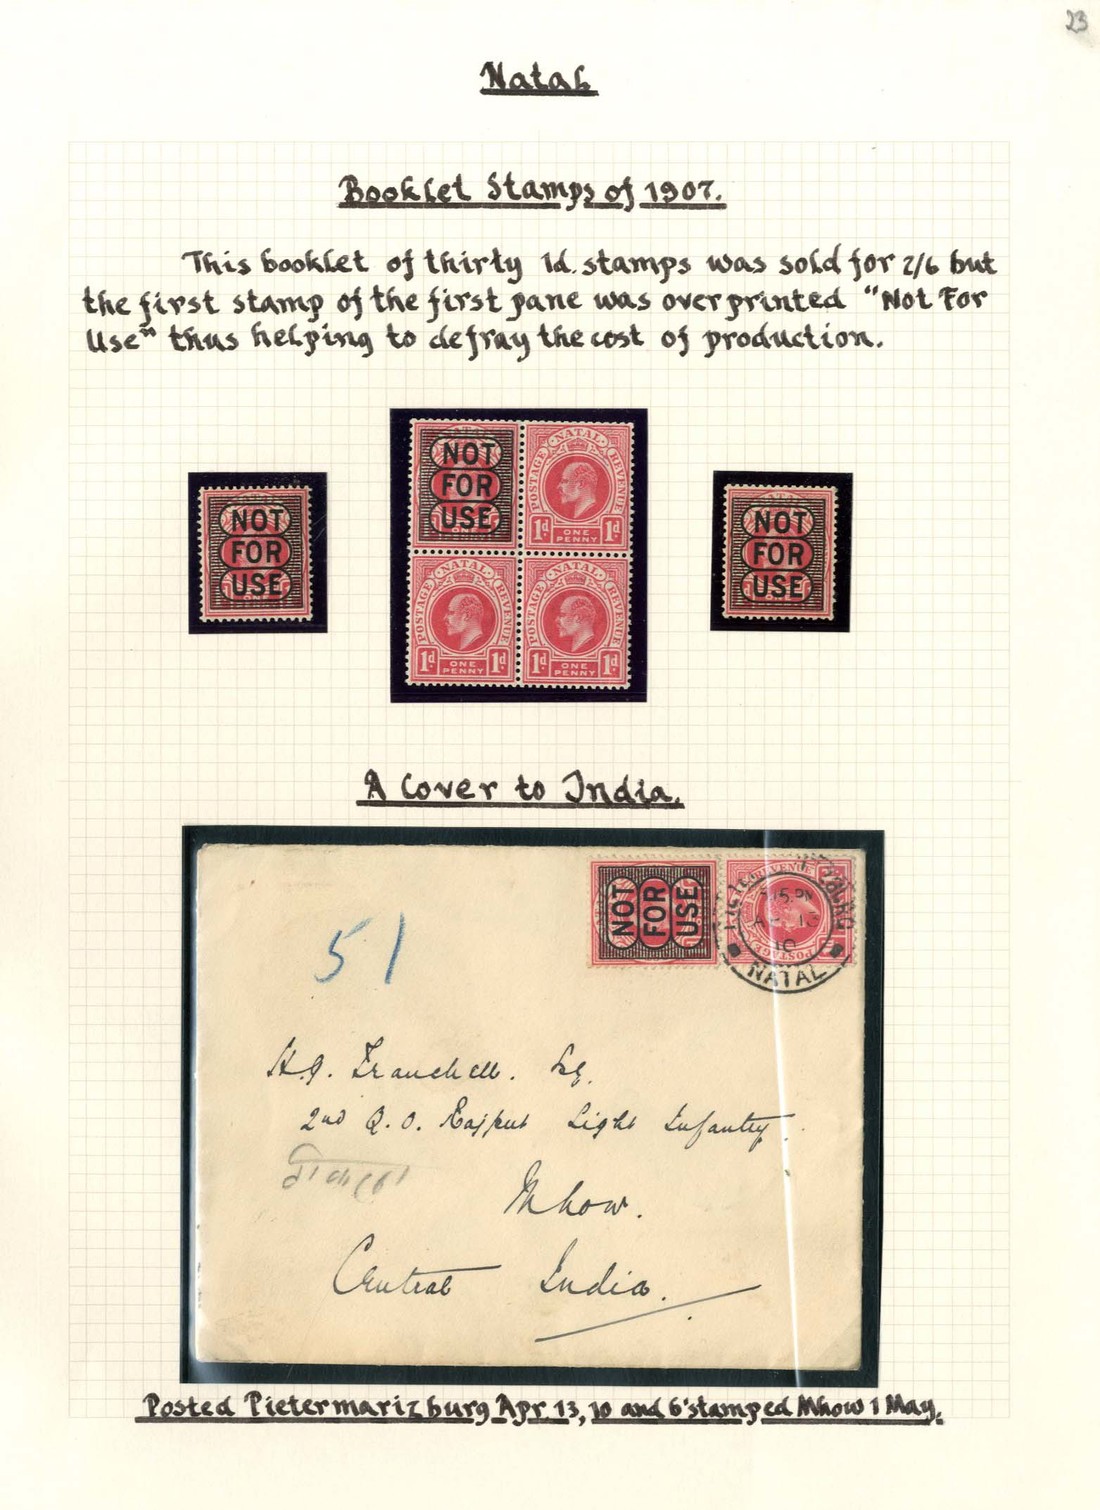 23
Natal
Booklet Stamps of 1907.
This booklet of thirty 1d. stamps was sold for 2/6 but
the first stamp of the first pane was overprinted "Not For
Use" thus helping to defray the cost of production.
NOT
FOR
USE
NOT
FOR
USE
NATAL
POSTAGE
REVENUE
1d
ONE
PENNY
1d
NATAL
POSTAGE
REVENUE
1d
ONE
PENNY
1d
NATAL
POSTAGE
REVENUE
1d
ONE
PENNY
1d
NOT
FOR
USE
A Cover to India.
51
NOT
FOR
USE
REVENUE
POSTAGE
15 PM
AP 13
10
NATAL
H.G. Franchell. Esq.
2nd Q.O. Rajput Light Infantry.
Mhow.
Central India.
Posted Pietermarizburg Apr. 13, 10 and b'stamped Mhow 1 May.